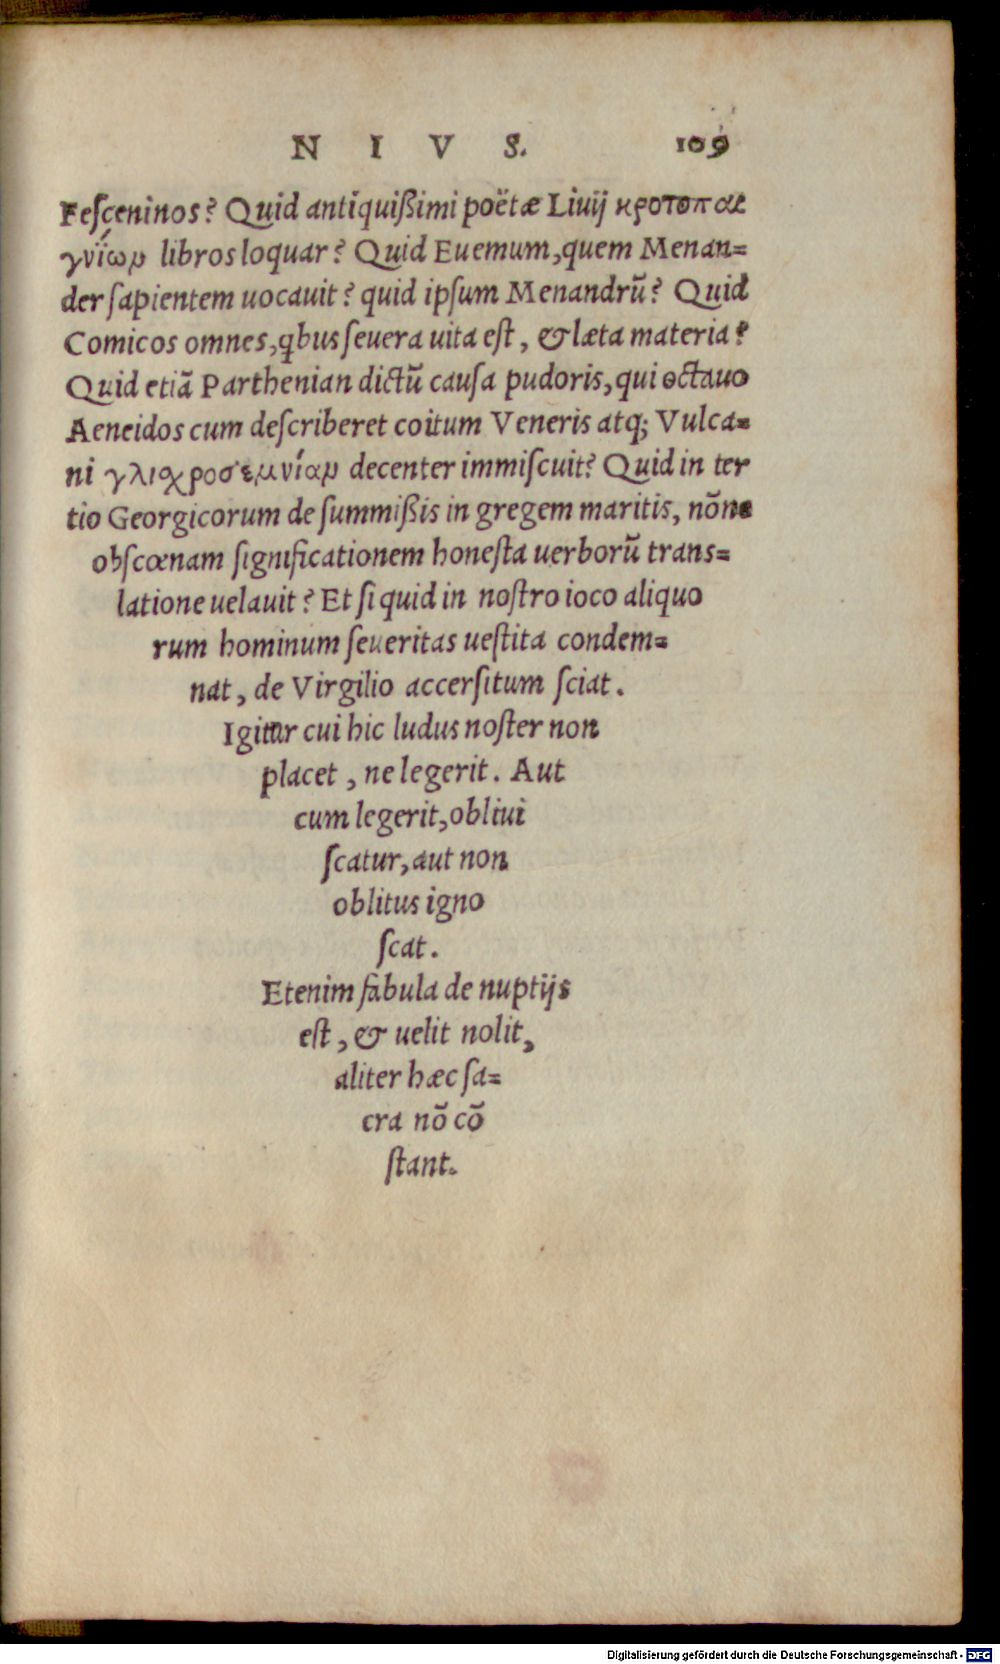 N I V S. 109
Feſceninos? Quid antiquißimi poëtæ Liuij κροτοπαι
γνίων libros loquar? Quid Euemum, quem Menan=
der ſapientem uocauit? quid ipſum Menandrū? Quid
Comicos omnes, qbus ſeuera uita eſt, & læta materia?
Quid etiā Parthenian dictū cauſa pudoris, qui octauo
Aeneidos cum deſcriberet coitum Veneris atq; Vulca=
ni γλιοχροσεμνίαν decenter immiſcuit? Quid in ter
tio Georgicorum de ſummißis in gregem maritis, nōne
obſcœnam ſignificationem honeſta uerborū trans=
latione uelauit? Et ſi quid in noſtro ioco aliquo
rum hominum ſeueritas ueſtita condem=
nat, de Virgilio accerſitum ſciat.
Igitur cui hic ludus noſter non
placet, ne legerit. Aut
cum legerit, obliui
ſcatur, aut non
oblitus igno
ſcat.
Etenim fabula de nuptijs
eſt, & uelit nolit,
aliter hæc ſa=
cra nō cō
ſtant.
Digitalisierung gefördert durch die Deutsche Forschungsgemeinschaft - DFG